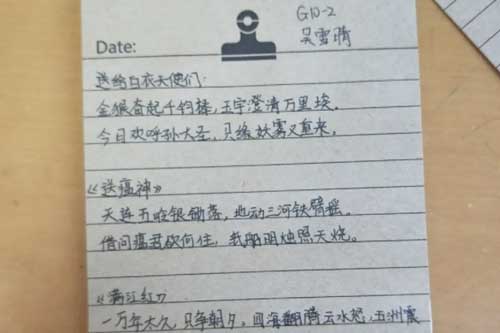 G10-2
吴雪腾
Date:
送给白衣天使们:
金猴奋起千钧棒，玉宇澄清万里埃。
今日欢呼孙大圣，只缘妖雾又重来。
《送瘟神》
天连五岭银锄落，地动三河铁臂摇。
借问瘟君欲何往，纸船明烛照天烧。
《满江红》
一万年太久，只争朝夕，四海翻腾云水怒，五洲震